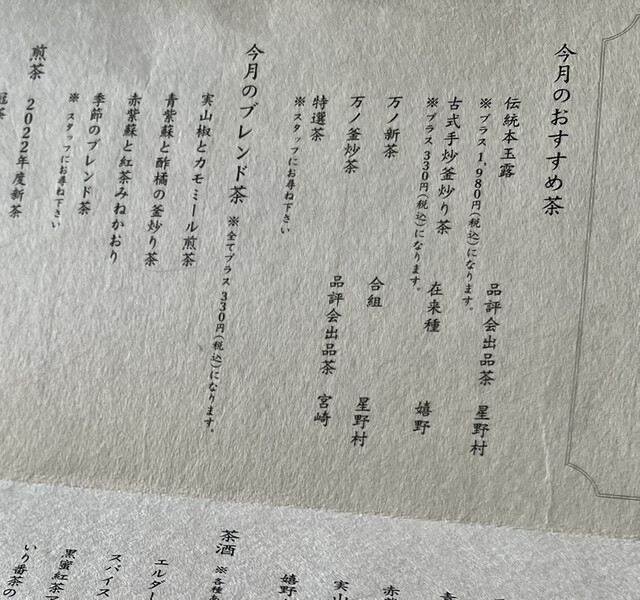 今月のおすすめ茶
伝統本玉露 品評会出品茶 星野村
※プラス1,980円(税込)になります。
古式手炒釜炒り茶 在来種 嬉野
※プラス330円(税込)になります。
万ノ新茶 合組 星野村
万ノ釜炒茶 品評会出品茶 宮崎
特選茶
※スタッフにお尋ね下さい
今月のブレンド茶 ※全てプラス330円(税込)になります。
実山椒とカモミール煎茶
青紫蘇と酢橘の釜炒り茶
赤紫蘇と紅茶みねかおり
季節のブレンド茶
※スタッフにお尋ね下さい
煎茶 2022年度新茶
実山
嬉野
茶酒 ※各種
エルダー
スパイス
黒蜜紅茶
いり番茶の